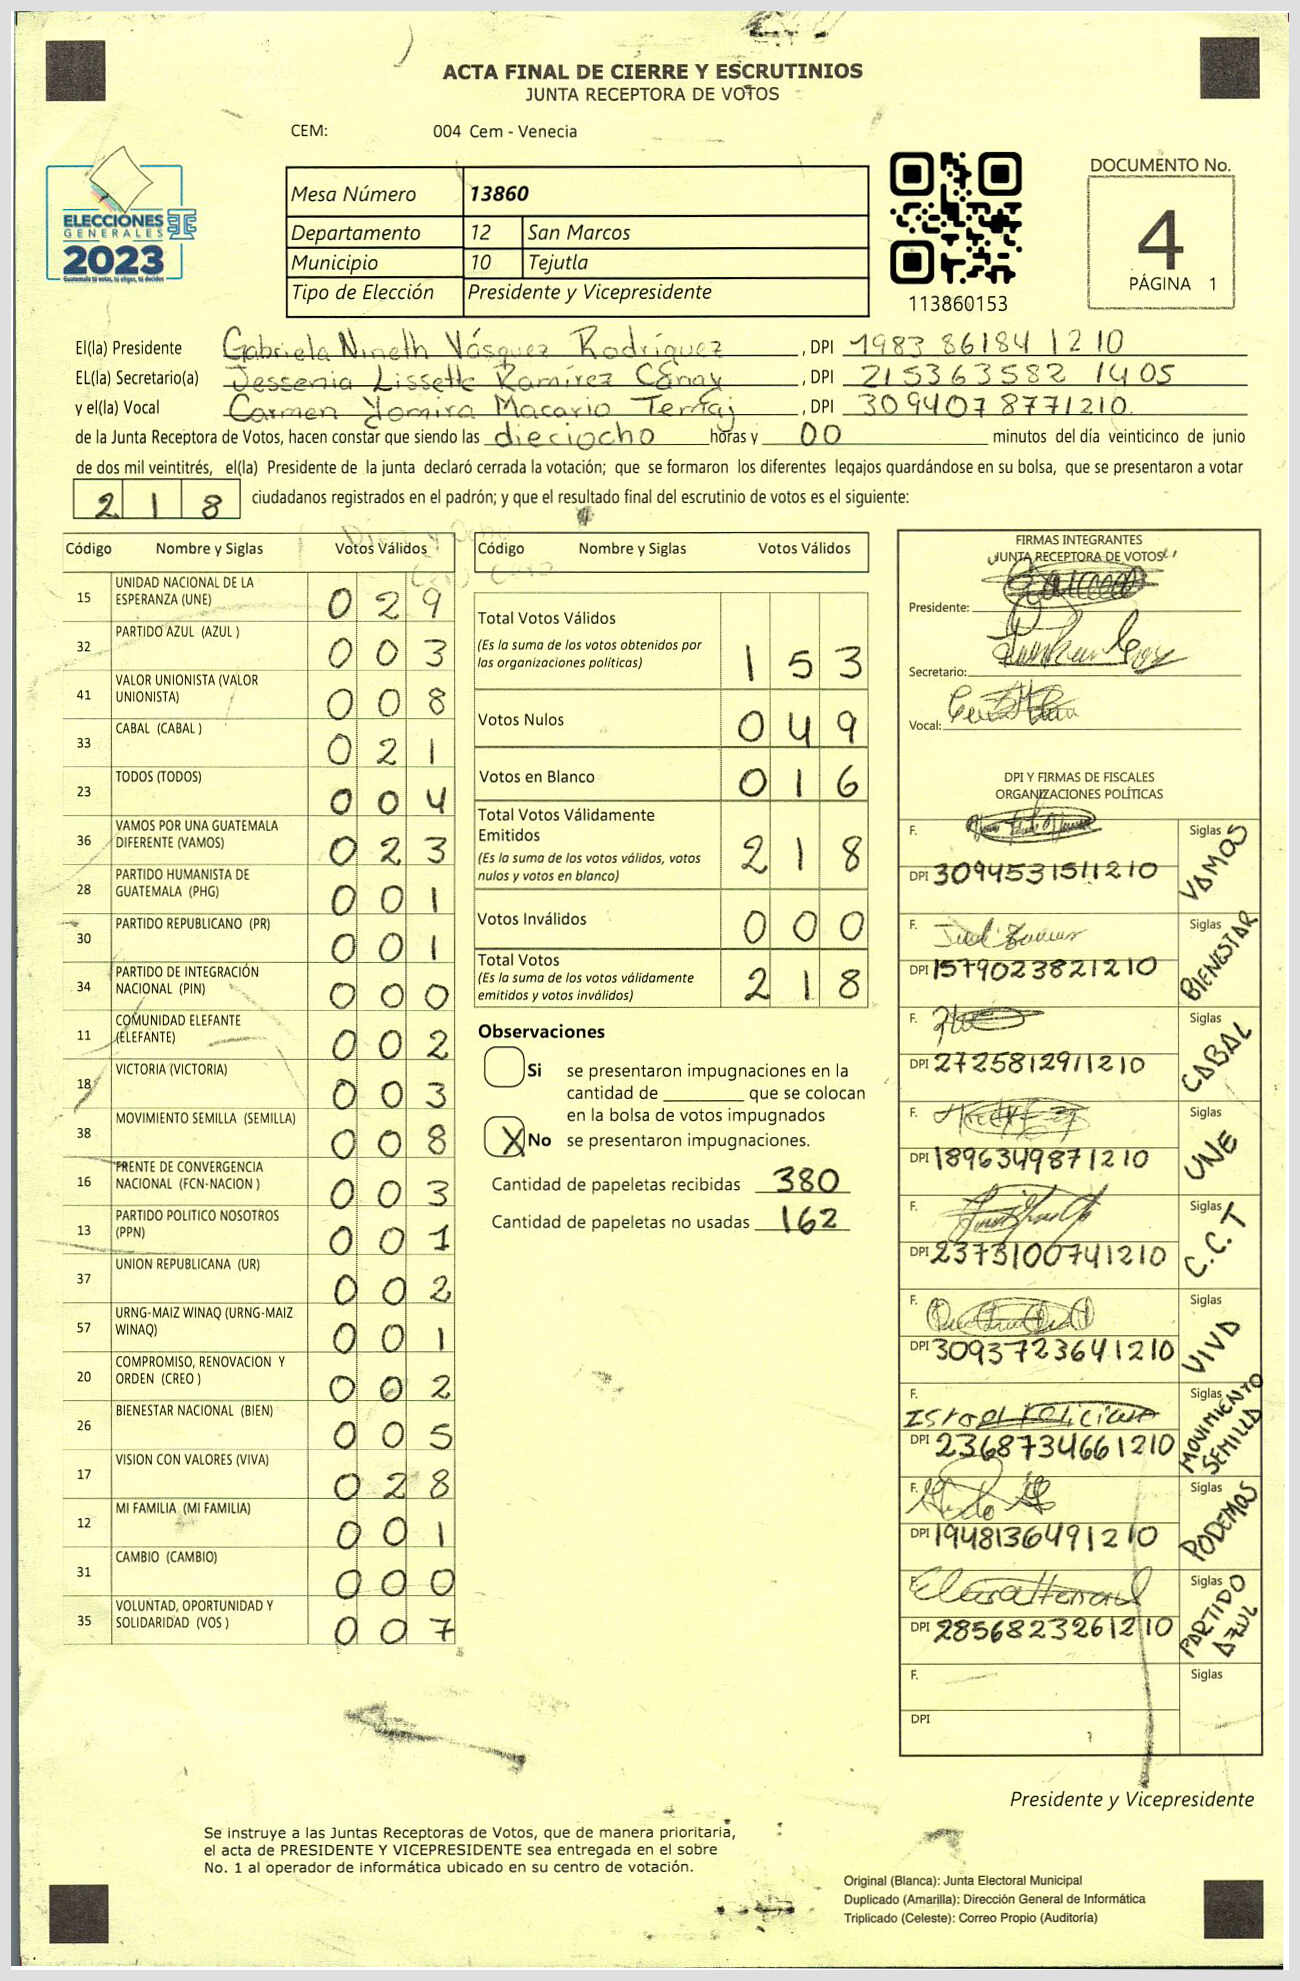 ACTA FINAL DE CIERRE Y ESCRUTINIOS
JUNTA RECEPTORA DE VOTOS
CEM: 004 Cem - Venecia
ELECCIONES
GENERALES
2023
Guatemala tú votas, tú eliges, tú decides
Mesa Número 13860
Departamento 12 San Marcos
Municipio 10 Tejutla
Tipo de Elección Presidente y Vicepresidente
113860153
DOCUMENTO No.
4
PÁGINA 1
El(la) Presidente Gabriela Nineth Vásquez Rodríguez, DPI 1983 86184 1210
EL(la) Secretario(a) Jessenia Lissette Ramírez, DPI 215363582 1405
y el(la) Vocal Carmen Yomira Macario, DPI 3094078771210
de la Junta Receptora de Votos, hacen constar que siendo las dieciocho horas y 00 minutos del día veinticinco de junio
de dos mil veintitrés, el(la) Presidente de la junta declaró cerrada la votación; que se formaron los diferentes legajos quardándose en su bolsa, que se presentaron a votar
218 ciudadanos registrados en el padrón; y que el resultado final del escrutinio de votos es el siguiente:
Código Nombre y Siglas Votos Válidos
15 UNIDAD NACIONAL DE LA ESPERANZA (UNE) 029
32 PARTIDO AZUL (AZUL ) 003
41 VALOR UNIONISTA (VALOR UNIONISTA) 008
33 CABAL (CABAL ) 021
23 TODOS (TODOS) 004
36 VAMOS POR UNA GUATEMALA DIFERENTE (VAMOS) 023
28 PARTIDO HUMANISTA DE GUATEMALA (PHG) 001
30 PARTIDO REPUBLICANO (PR) 001
34 PARTIDO DE INTEGRACIÓN NACIONAL (PIN) 000
11 COMUNIDAD ELEFANTE (ELEFANTE) 002
18 VICTORIA (VICTORIA) 003
38 MOVIMIENTO SEMILLA (SEMILLA) 008
16 FRENTE DE CONVERGENCIA NACIONAL (FCN-NACION ) 003
13 PARTIDO POLITICO NOSOTROS (PPN) 001
37 UNION REPUBLICANA (UR) 002
57 URNG-MAIZ WINAQ (URNG-MAIZ WINAQ) 001
20 COMPROMISO, RENOVACION Y ORDEN (CREO ) 002
26 BIENESTAR NACIONAL (BIEN) 005
17 VISION CON VALORES (VIVA) 028
12 MI FAMILIA (MI FAMILIA) 001
31 CAMBIO (CAMBIO) 000
35 VOLUNTAD, OPORTUNIDAD Y SOLIDARIDAD (VOS ) 007
Código Nombre y Siglas Votos Válidos
Total Votos Válidos 153
(Es la suma de los votos obtenidos por
las organizaciones políticas)
Votos Nulos 049
Votos en Blanco 016
Total Votos Válidamente
Emitidos 218
(Es la suma de los votos válidos, votos
nulos y votos en blanco)
Votos Inválidos 000
Total Votos 218
(Es la suma de los votos válidamente
emitidos y votos inválidos)
Observaciones
Si se presentaron impugnaciones en la
cantidad de ________ que se colocan
en la bolsa de votos impugnados
X No se presentaron impugnaciones.
Cantidad de papeletas recibidas 380
Cantidad de papeletas no usadas 162
FIRMAS INTEGRANTES
JUNTA RECEPTORA DE VOTOS
Presidente:
Secretario:
Vocal:
DPI Y FIRMAS DE FISCALES
ORGANIZACIONES POLÍTICAS
F. Siglas VAMOS
DPI 3094531511210
F. Siglas BIENESTAR
DPI 1579023821210
F. Siglas CABAL
DPI 2725812911210
F. Siglas UNE
DPI 1896349871210
F. Siglas C.C.T
DPI 2373100741210
F. Siglas VIVA
DPI 3093723641210
F. Siglas MOVIMIENTO SEMILLA
DPI 2368734661210
F. Siglas PODEMOS
DPI 1948136491210
F. Siglas PARTIDO AZUL
DPI 2856823261210
F. Siglas
DPI
Presidente y Vicepresidente
Se instruye a las Juntas Receptoras de Votos, que de manera prioritaria,
el acta de PRESIDENTE Y VICEPRESIDENTE sea entregada en el sobre
No. 1 al operador de informática ubicado en su centro de votación.
Original (Blanca): Junta Electoral Municipal
Duplicado (Amarilla): Dirección General de Informática
Triplicado (Celeste): Correo Propio (Auditoría)